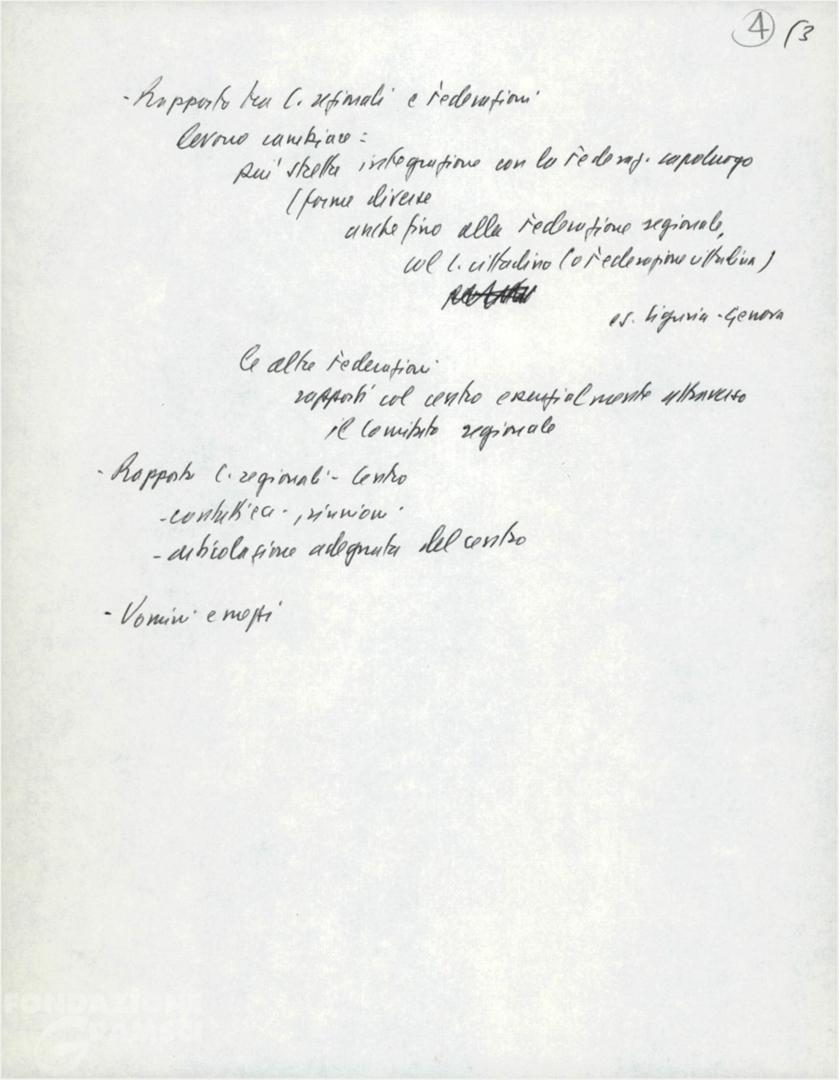 4 /3
- Rapporto tra C. regionali e Federazioni
devono cambiare:
più stretta integrazione con la Federaz. capoluogo
(forme diverse
anche fino alla Federazione regionale,
col C. cittadino (o Federazione cittadina)
es. Liguria - Genova
le altre Federazioni
rapporti col centro essenzialmente attraverso
il Comitato regionale
- Rapporto C. regionali - Centro
- contatti ecc., riunioni
- articolazione adeguata del centro
- Uomini e mezzi
FONDAZIONE
GRAMSCI